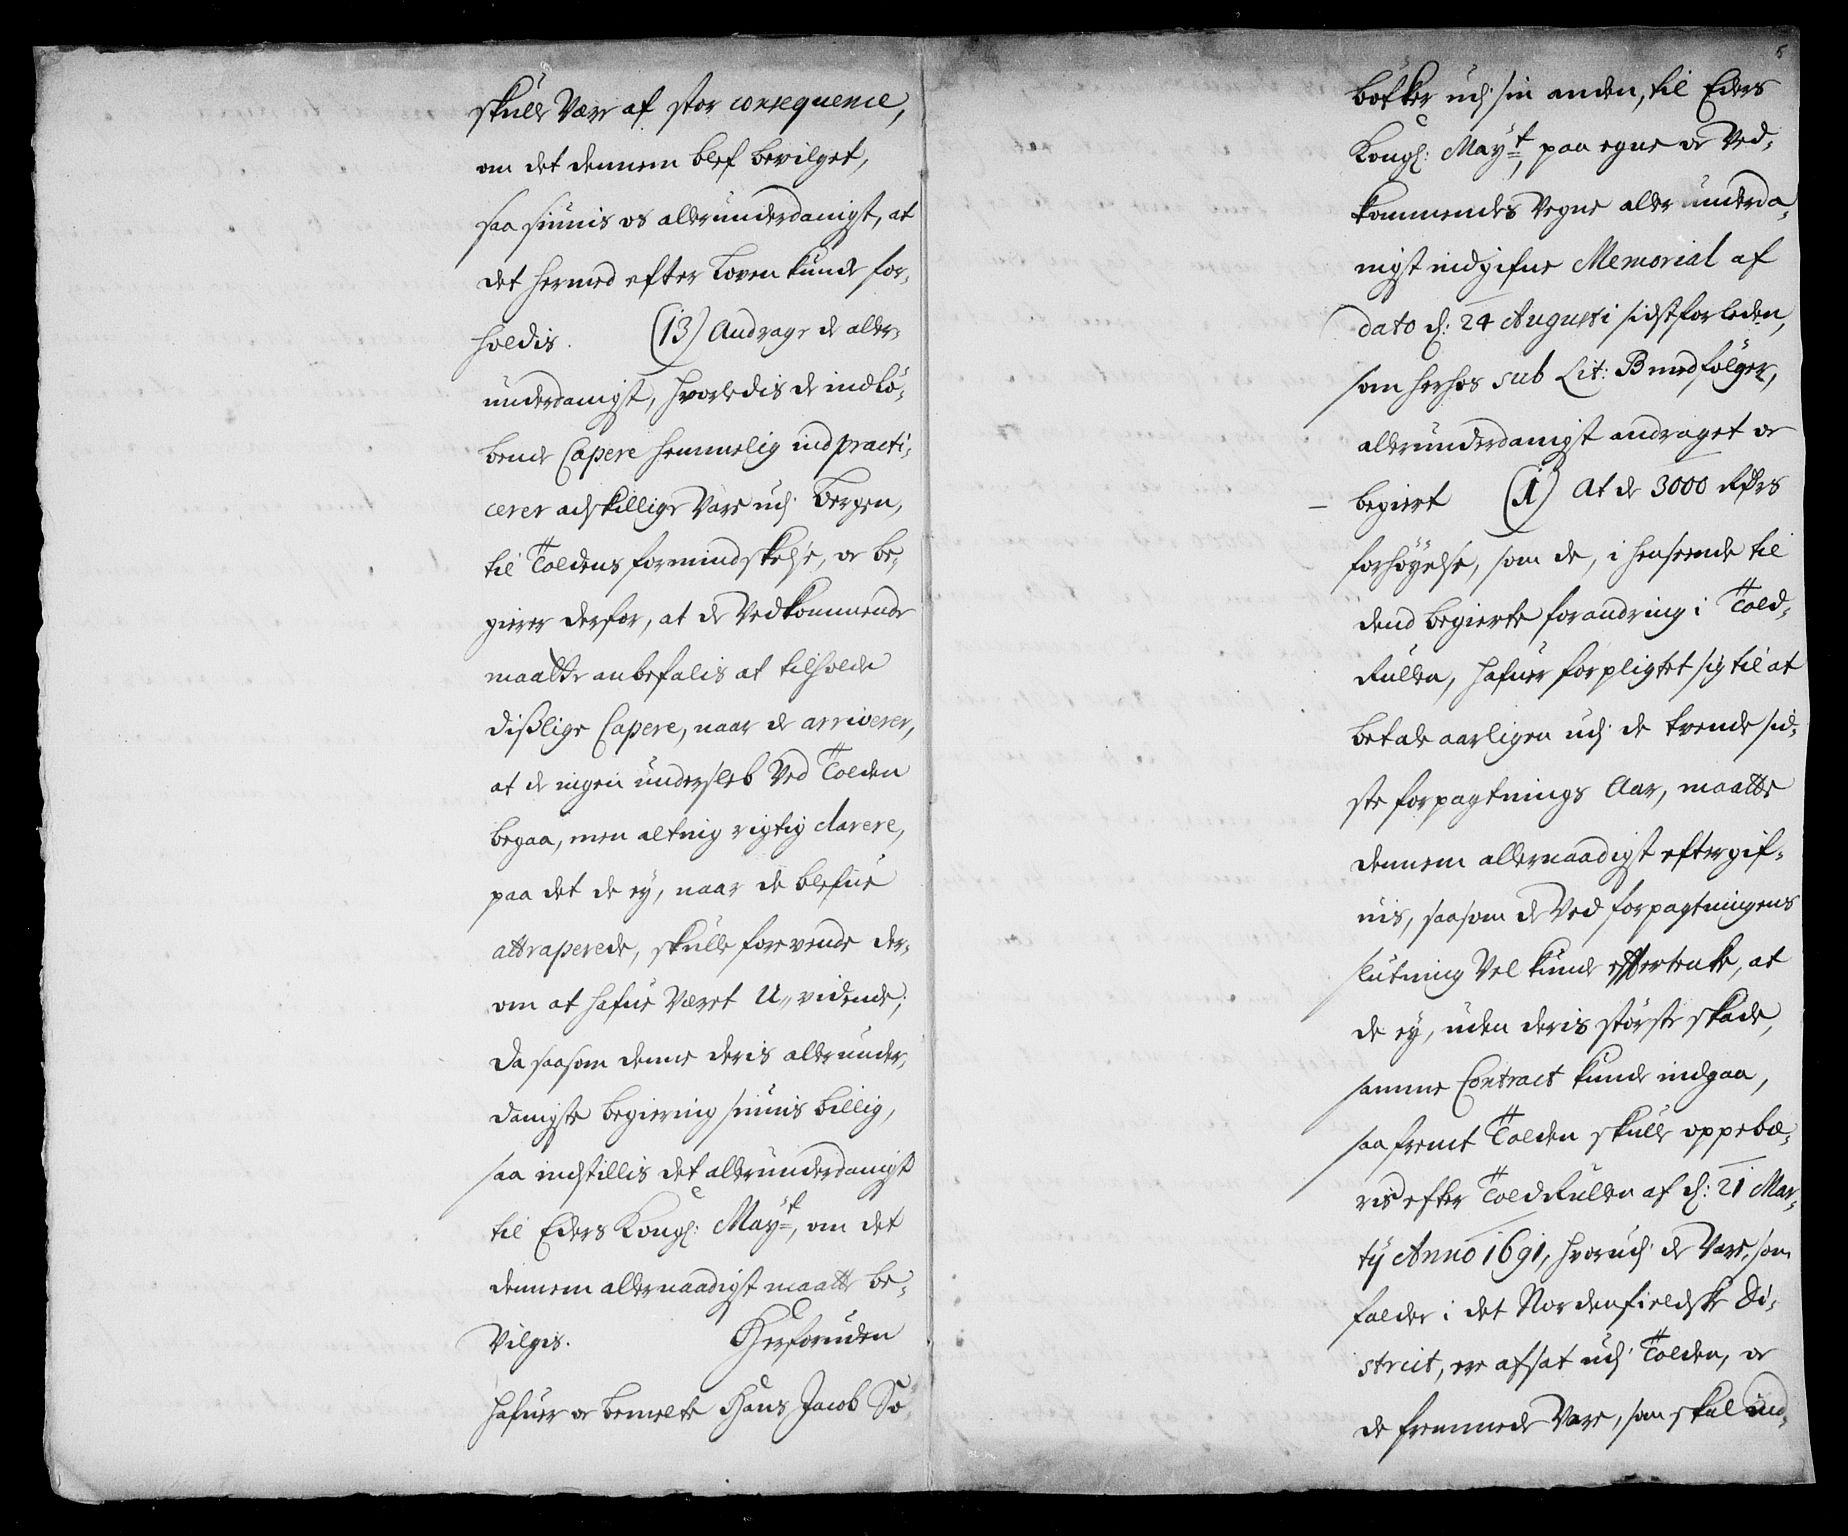 skulle være af stor consequence,
om det dennem blef bevilget,
saa siunis os allerunderdanigst, at
det hermed efter Loven kunde for-
holdis. (13) Andrage de aller-
underdanigst, hvorledis de indlö-
bende Capere hemmelig ind practi-
cerer adskillige Vare udj Bergen,
til Toldens formindskelse, oc be-
gierer derfor, at de Vedkommende
maatte anbefalis at tilholde
dißlige Capere, naar de arriverer,
at de ingen undersleb Ved Tolden
begaa, men alting rigtig clarere,
paa det de ey, naar de blefue
attraperede, skulle forevende der-
om at hafue Været U,,vidende;
Da saasom denne deris allerunder-
danigste begiering siunis billig,
saa indstillis det allerunderdanigst
til Eders Kongl: Mayt, om det
dennem allernaadigst maatte be-
Vilgis. Herforuden
hafuer oc bemelte Hans Jacob Sö-
5
bötker udj sin anden, til Eders
Kongl: Mayt, paa egne oc Ved-
kommendes Vegne allerunderda-
nigst indgifne Memorial af
dato d: 24 Augusti sidstforleden,
som herhos sub Lit: B medfölger,
allerunderdanigst andraget oc
begiert (1) At de 3000 Rdrs
forhöyelse, som de, i henseende til
dend begierte forandring i Told-
Rullen, hafuer forpligtet sig til at
betale aarligen udj de tvende sid-
ste forpagtnings Aar, maatte
dennem allernaadigst eftergif-
uis, saasom de Ved forpagtningens
slutning Vel kunde eftertenke, at
de ey, uden deris störste skade,
samme Contract kunde indgaa,
saa fremt Tolden skulle oppebæ-
ris efter Told Rullen af d: 21 Mar-
tij Anno 1691, hvorudj de Vare, som
falder i det Nordenfieldske Di-
strict, ere afsat udj Tolden, oc
de fremmede Vare, som skal ind-